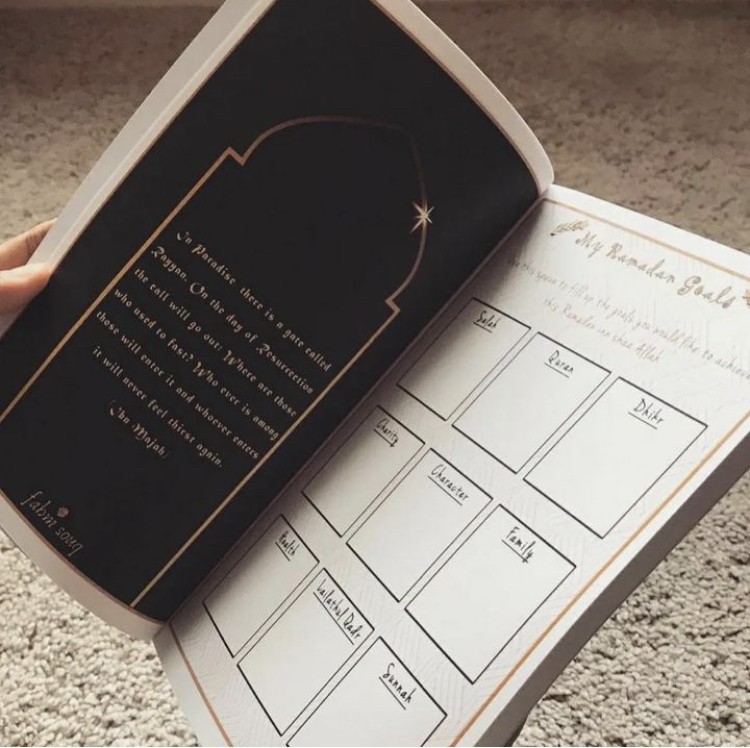 In Paradise, there is a gate called
Rayyan. On the day of Resurrection
the call will go out: Where are those
who used to fast? Who ever is among
those will enter it and whoever enters
it will never feel thirst again.
(Ibn Majah)
fahm souq
My Ramadan Goals
Use this space to fill up the goals you would like to achieve
this Ramadan inn shaa Allah
Salah
Quran
Dhikr
Charity
Character
Family
Health
Lailathul Qadr
Sunnah